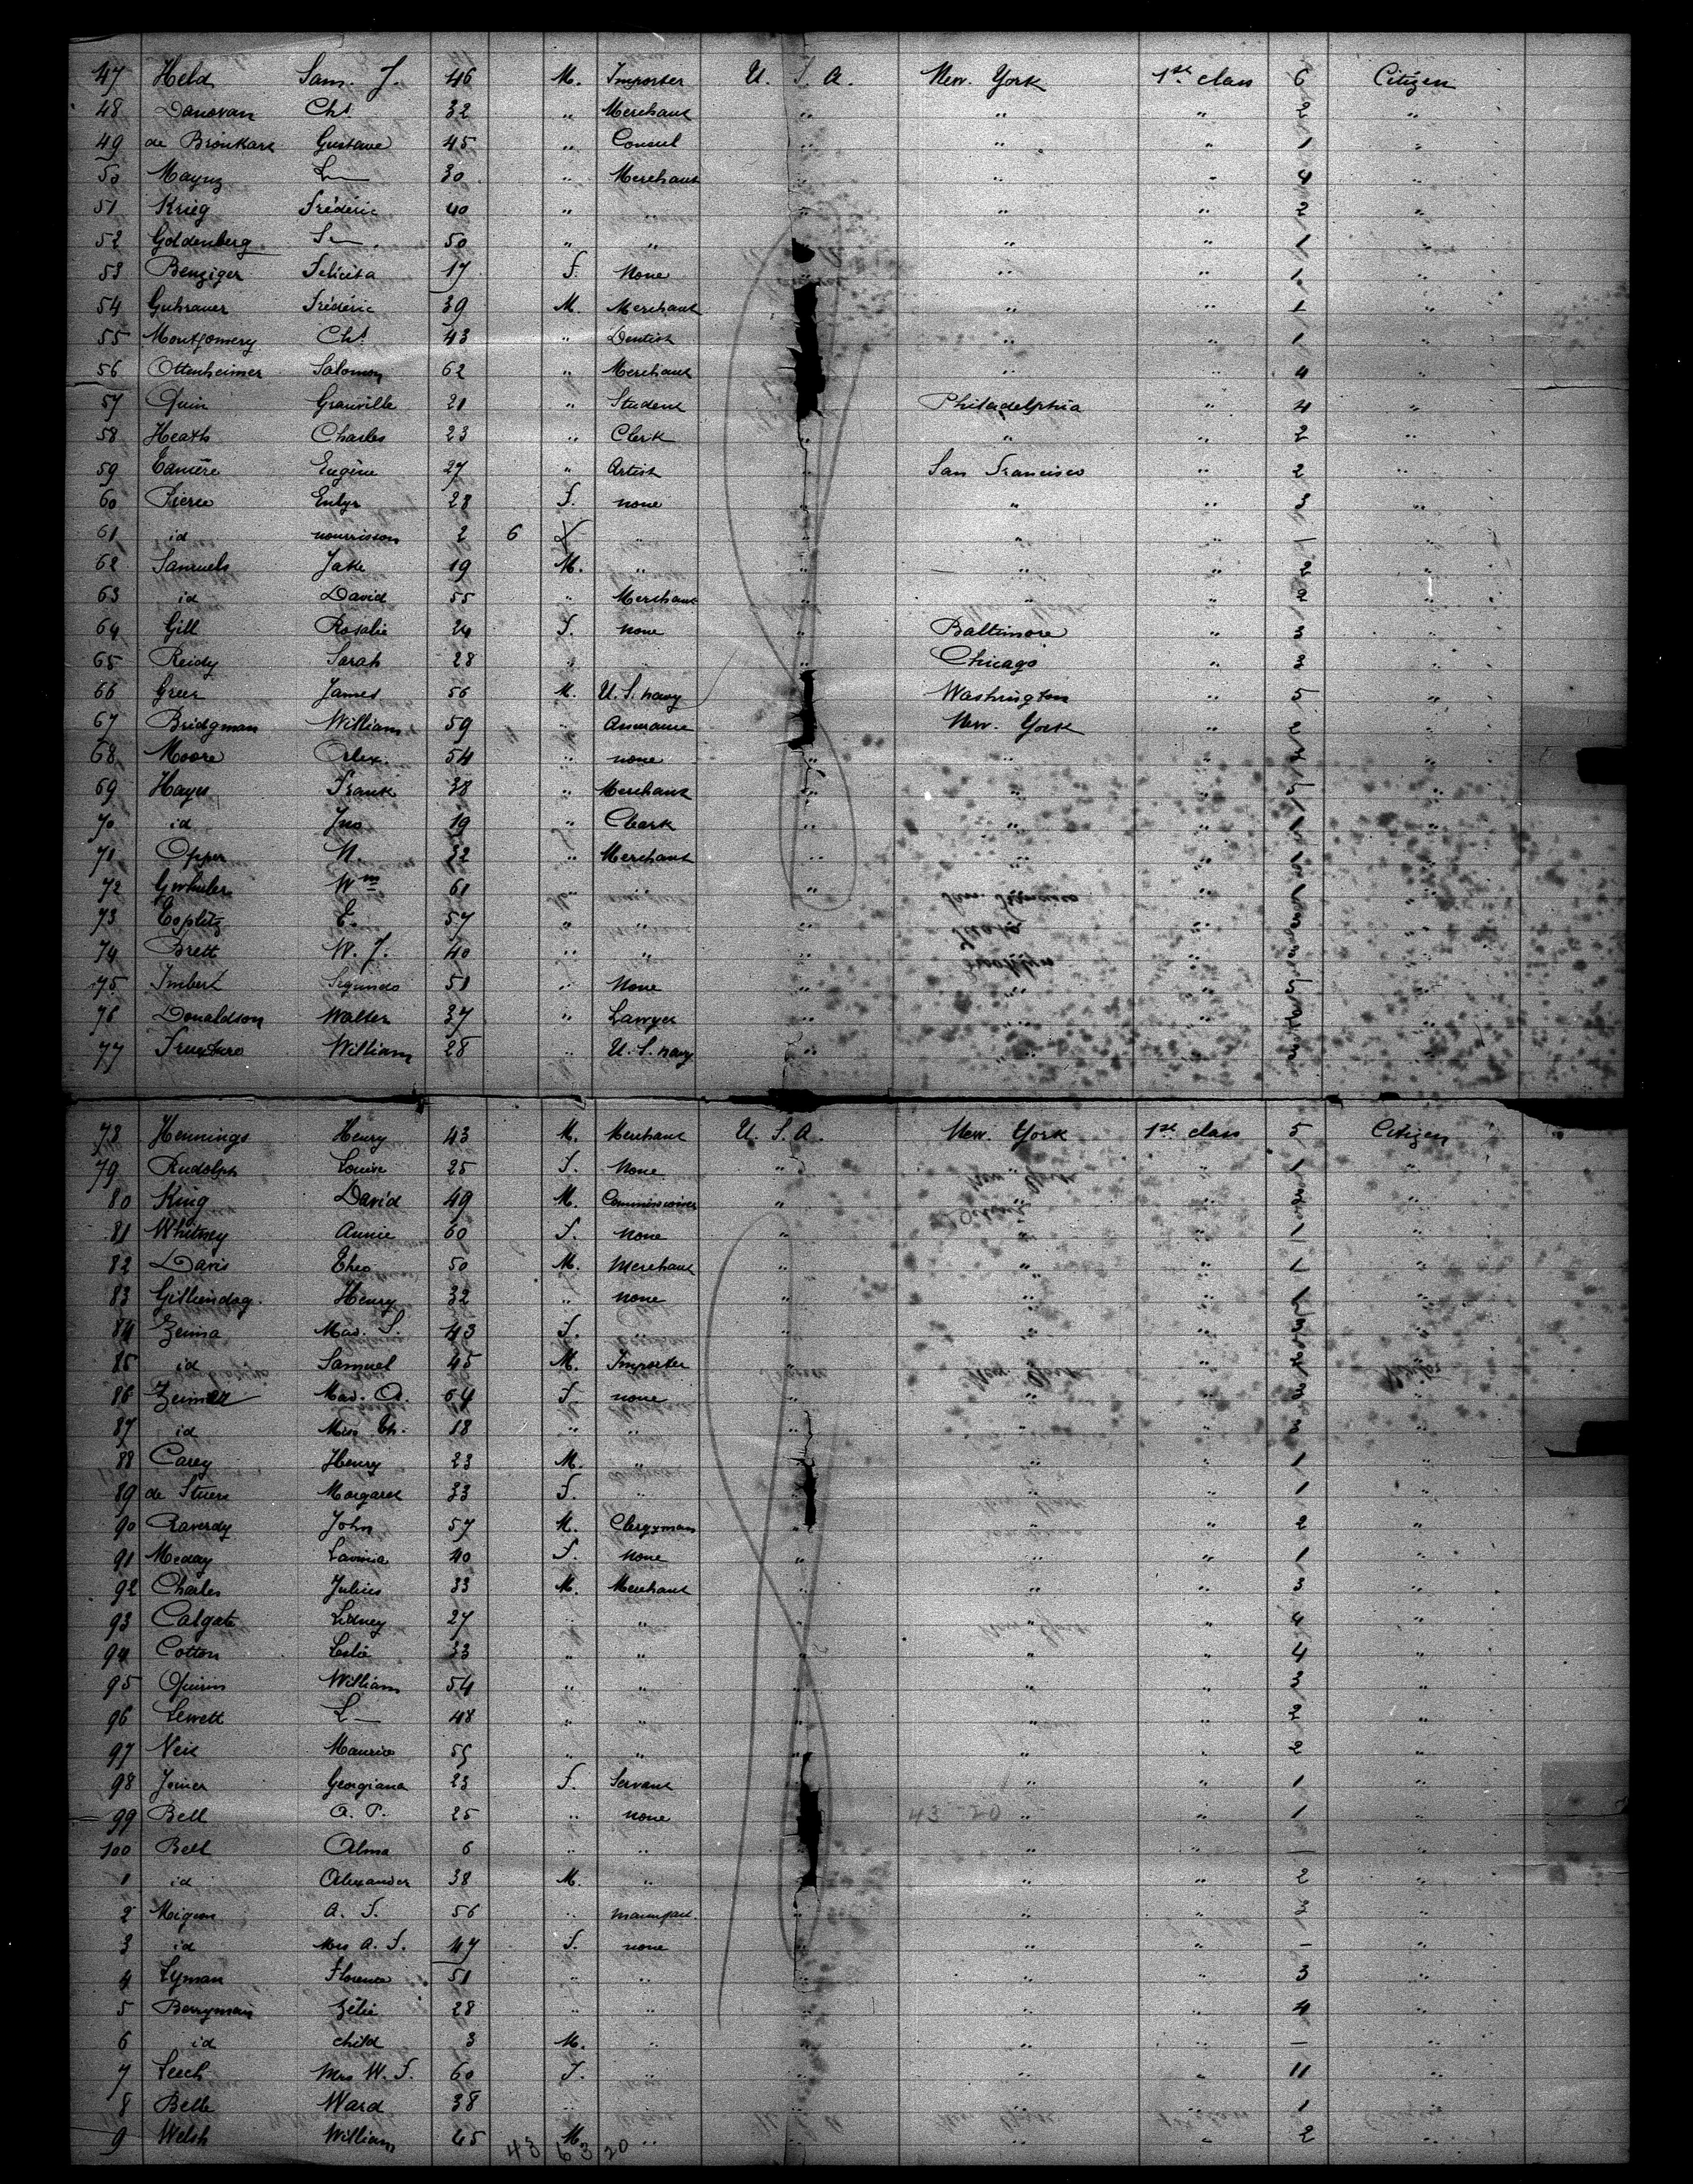 47 Held Sam. J. 46 M. Importer U. S. A. New. York 1st class 6 Citizen
48 Donovan Chs. 32 " Merchant " " " 2 "
49 de Bronkart Gustave 45 " Consul " " " 1 "
50 Maynz L— 30 " Merchant " " " 4 "
51 Krieg Fréderic 40 " " " " " 2 "
52 Goldenberg S— 50 " " " " " 1 "
53 Benziger Felicita 17 F. None " " " 1 "
54 Guhrauer Fréderic 39 M. Merchant " " 1 "
55 Montgomery Chs. 43 " Dentist " " 1 "
56 Ottenheimer Salomon 62 " Merchant " " 4 "
57 Quin Granville 21 " Student Philadelphia " 4 "
58 Heath Charles 23 " Clerk " " " 2 "
59 Eugène 27 " Artist " San Francisco " 2 "
60 Pierce 28 F. none " " " 3 "
61 id nourrisson 2 6 X " " " " — "
62 Samuels Jake 19 M. " " " " 2 "
63 id David 55 " Merchant " " " 2 "
64 Gill Rosalie 24 F. none " Baltimore " 3 "
65 Reidy Sarah 28 " " " Chicago " 3 "
66 Greer James 56 M. U. S. navy Washington " 5 "
67 Bridgman William 59 " New. York " 2 "
68 Moore Alex. 54 " none " " " "
69 Hayes Frank 38 " Merchant " " " "
70 id Jno 19 " Clerk " " " 1 "
71 Opper N. 32 " Merchant " " " "
72 Wm 61 " " " " " "
73 Toplitz E. 57 " " " " " "
74 Brett W. J. 40 " " " " " "
75 Imbert Segundo 51 " None " " " "
76 Donaldson Walter 37 " Lawyer " " " "
77 William 28 " U. S. navy " " " "
78 Hennings Henry 43 M. Merchant U. S. A. New. York 1st class 5 Citizen
79 Rudolph Louise 25 F. None " " " 1 "
80 King David 49 M. Commissioner " " " "
81 Whitney Annie 60 F. none " " " 1 "
82 Davis Theo 50 M. merchant " " " 1 "
83 Henry 32 " none " " " 1 "
84 Mad. S. 43 F. " " " " "
85 id Samuel 45 M. Importer " " " "
86 Mad. A. 64 F none " " " "
87 id Miss Th. 18 " " " " " 3 "
88 Carey Henry 23 M. " " " 1 "
89 de Stuers Margaret 33 F. " " " 1 "
90 Raverdy John 57 M. Clergyman " " " 2 "
91 Meday Lavinia 40 F. none " " " 1 "
92 Charles Julius 33 M. Merchant " " " 3 "
93 Calgate Sidney 27 " " " " " 4 "
94 Cotton Leslie 33 " " " " " 4 "
95 William 54 " " " " " 3 "
96 Lewett L— 48 " " " " " 2 "
97 Maurice 55 " " " " " 2 "
98 Joiner Georgiana 23 F. Servant " " 1 "
99 Bell A. P. 25 " none 43 20 " " 1 "
100 Bell Alma 6 " " " " — "
1 id Alexander 38 M. " " " 2 "
2 A. S. 56 " manufact. " " " 3 "
3 id Mrs A. S. 47 F. none " " " — "
4 Lyman Florence 51 " " " " " 3 "
5 Berryman Zélie 28 " " " " " 4 "
6 id child 3 M. " " " " — "
7 Leech Mrs W. F. 60 F. " " " " 11 "
8 Belle Ward 38 " " " " " 1 "
9 Welsh William 65 M. " " " " 2 "
43 63 20